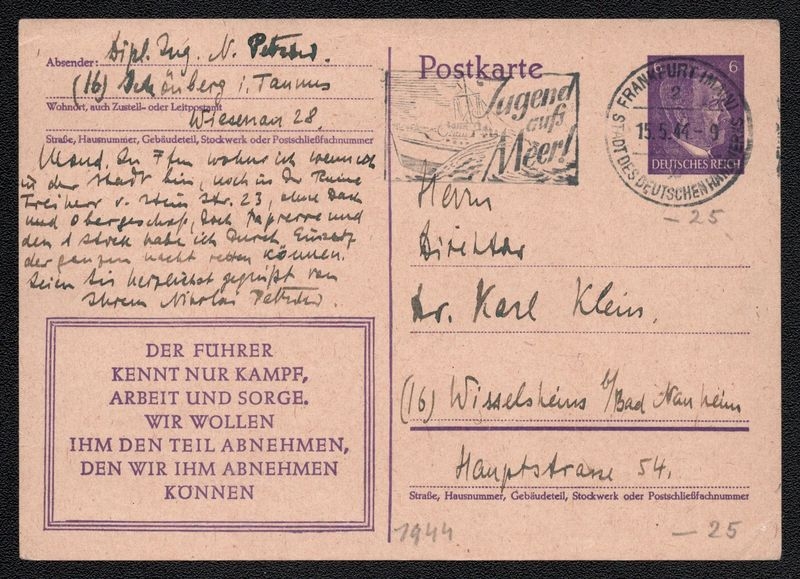 Absender: Dipl. Ing. N.
(16) Schönberg i. Taunus
Wohnort, auch Zustell- oder Leitpostamt
Wiesenau 28.
Straße, Hausnummer, Gebäudeteil, Stockwerk oder Postschließfachnummer
wohne ich wenn ich
in der Stadt bin, noch in der Ruine
Freiherr v. Stein Str. 23, ohne Dach
und Obergeschoß, doch und
den 1 Stock habe ich durch Einsatz
der ganzen Nacht retten können.
Seien Sie herzlichst gegrüßt von
Ihrem Nikolai
DER FÜHRER
KENNT NUR KAMPF,
ARBEIT UND SORGE.
WIR WOLLEN
IHM DEN TEIL ABNEHMEN,
DEN WIR IHM ABNEHMEN
KÖNNEN
Postkarte
Jugend
aufs
Meer!
FRANKFURT (MAIN)
2
15.5.44.-9
STADT DES DEUTSCHEN HANDWERKS
6
DEUTSCHES REICH
– 25
Herrn
Direktor
Dr. Karl Klein.
(16) Wisselsheim b/Bad Nauheim
Hauptstrasse 54.
Straße, Hausnummer, Gebäudeteil, Stockwerk oder Postschließfachnummer
1944
– 25